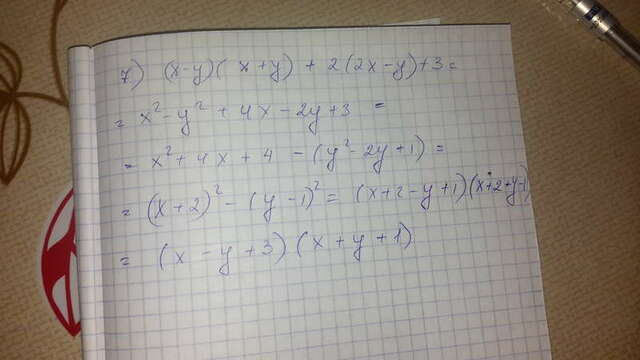 7) (x-y)(x+y) + 2(2x-y)+3=
= x²-y² + 4x-2y+3 =
= x²+4x+4 - (y²-2y+1) =
= (x+2)² - (y-1)² = (x+2-y+1)(x+2+y-1)
= (x-y+3)(x+y+1)